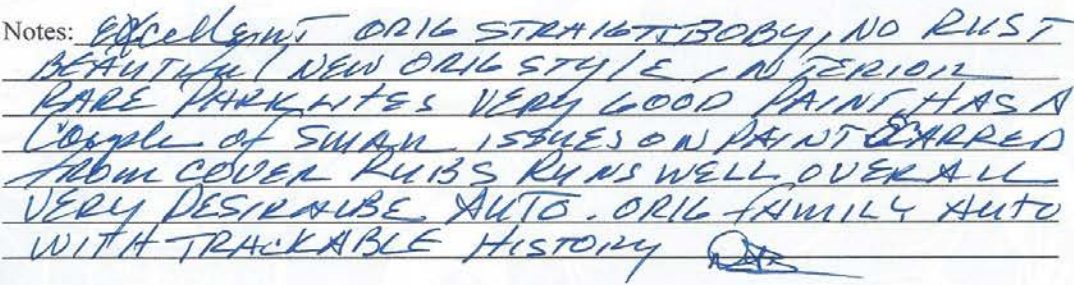 Notes: EXcellenT ORIG STRAIGHT BOBY, NO RUST
BEAUTIful NEW ORIG STYlE INTERIOR
RARE PARK LITES VERY GOOD PAINT, HAS A
Couple of SMALL ISSUES ON PAINT SCARRED
FROM COVER RUBS RUNS WELL OVERALL
VERY DESIRAUBE AUTO. ORIG FAMILY AUTO
WITH TRACKABLE HISTORY